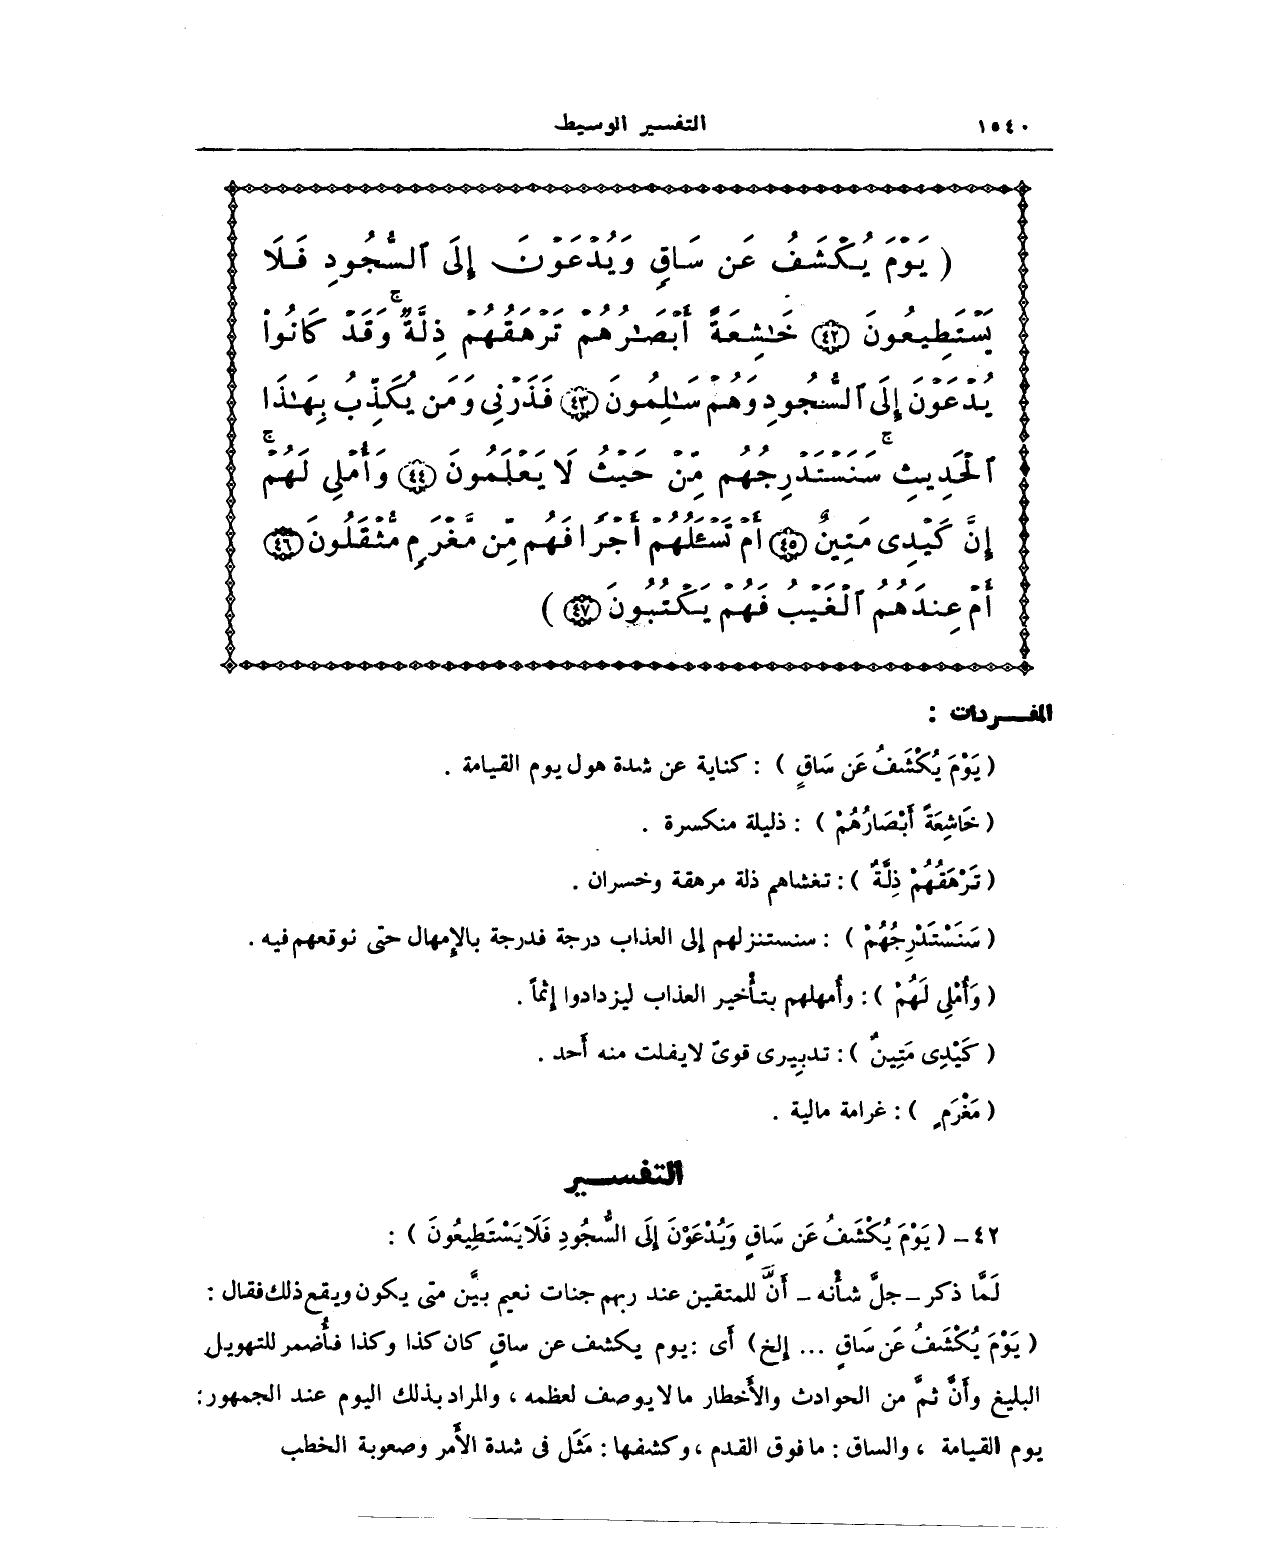 ١٥٤٠
التفسير الوسيط
( يَوْمَ يُكْشَفُ عَن سَاقٍ وَيُدْعَوْنَ إِلَى ٱلسُّجُودِ فَلَا
يَسْتَطِيعُونَ ﴿٤٢﴾ خَٰشِعَةً أَبْصَٰرُهُمْ تَرْهَقُهُمْ ذِلَّةٌ ۖ وَقَدْ كَانُوا۟
يُدْعَوْنَ إِلَى ٱلسُّجُودِ وَهُمْ سَٰلِمُونَ ﴿٤٣﴾ فَذَرْنِى وَمَن يُكَذِّبُ بِهَٰذَا
ٱلْحَدِيثِ ۖ سَنَسْتَدْرِجُهُم مِّنْ حَيْثُ لَا يَعْلَمُونَ ﴿٤٤﴾ وَأُمْلِى لَهُمْ ۚ
إِنَّ كَيْدِى مَتِينٌ ﴿٤٥﴾ أَمْ تَسْـَٔلُهُمْ أَجْرًا فَهُم مِّن مَّغْرَمٍ مُّثْقَلُونَ ﴿٤٦﴾
أَمْ عِندَهُمُ ٱلْغَيْبُ فَهُمْ يَكْتُبُونَ ﴿٤٧﴾ )
المفـــردات :
( يَوْمَ يُكْشَفُ عَن سَاقٍ ) : كناية عن شدة هول يوم القيامة .
( خَاشِعَةً أَبْصَارُهُمْ ) : ذليلة منكسرة .
( تَرْهَقُهُمْ ذِلَّةٌ ) : تغشاهم ذلة مرهقة وخسران .
( سَنَسْتَدْرِجُهُمْ ) : سنستنزلهم إلى العذاب درجة فدرجة بالإمهال حتى نوقعهم فيه .
( وَأُمْلِى لَهُمْ ) : وأُمهلهم بتأْخير العذاب ليزدادوا إثماً .
( كَيْدِى مَتِينٌ ) : تدبيرى قوىّ لايفلت منه أَحد .
( مَغْرَمٍ ) : غرامة مالية .
التفســـير
٤٢ - ( يَوْمَ يُكْشَفُ عَن سَاقٍ وَيُدْعَوْنَ إِلَى السُّجُودِ فَلَا يَسْتَطِيعُونَ ) :
لَمَّا ذكر - جلَّ شأْنه - أَنَّ للمتقين عند ربهم جنات نعيم بيَّن متى يكون ويقع ذلك فقال :
( يَوْمَ يُكْشَفُ عَن سَاقٍ ... إلخ ) أَى : يوم يكشف عن ساقٍ كان كذا وكذا فأُضمر للتهويل
البليغ وأَنَّ ثمَّ من الحوادث والأَخطار مالا يوصف لعظمه ، والمراد بذلك اليوم عند الجمهور :
يوم القيامة ، والساق : مافوق القدم ، وكشفها : مَثَل فى شدة الأَمر وصعوبة الخطب